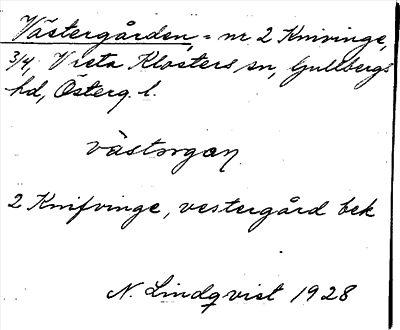 Västergården, = nr 2 Knivinge,
3/4, Vreta Klosters sn, Gullbergs
hd, Österg. l.
västorgan
2 Knifvinge, vestergård bek
N. Lindqvist 1928